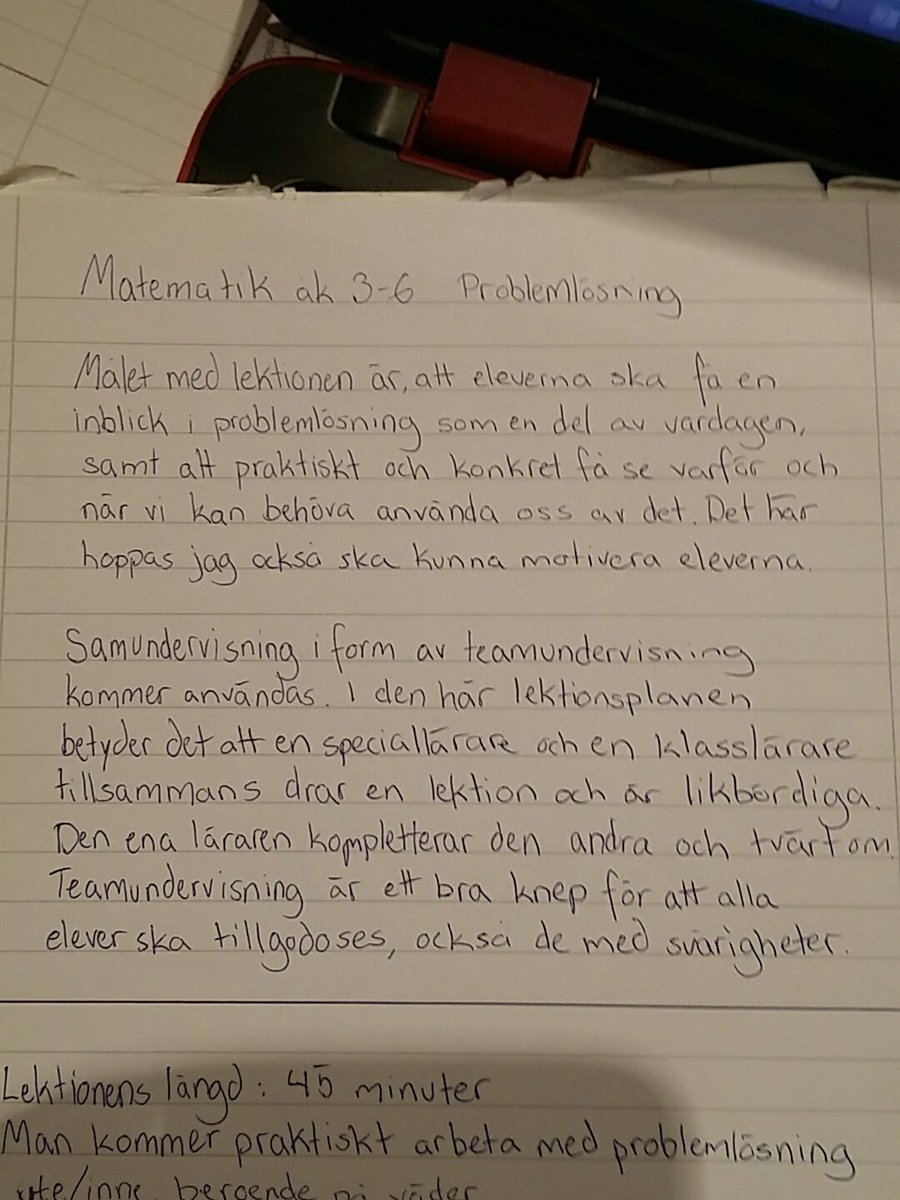 Matematik åk 3-6 Problemlösning
Målet med lektionen är, att eleverna ska få en
inblick i problemlösning som en del av vardagen,
samt att praktiskt och konkret få se varför och
när vi kan behöva använda oss av det. Det här
hoppas jag också ska kunna motivera eleverna.
Samundervisning i form av teamundervisning
kommer användas. I den här lektionsplanen
betyder det att en speciallärare och en klasslärare
tillsammans drar en lektion och är likbördiga.
Den ena läraren kompletterar den andra och tvärt om.
Teamundervisning är ett bra knep för att alla
elever ska tillgodoses, också de med svårigheter.
Lektionens längd: 45 minuter
Man kommer praktiskt arbeta med problemlösning
ute/inne, beroende på väder